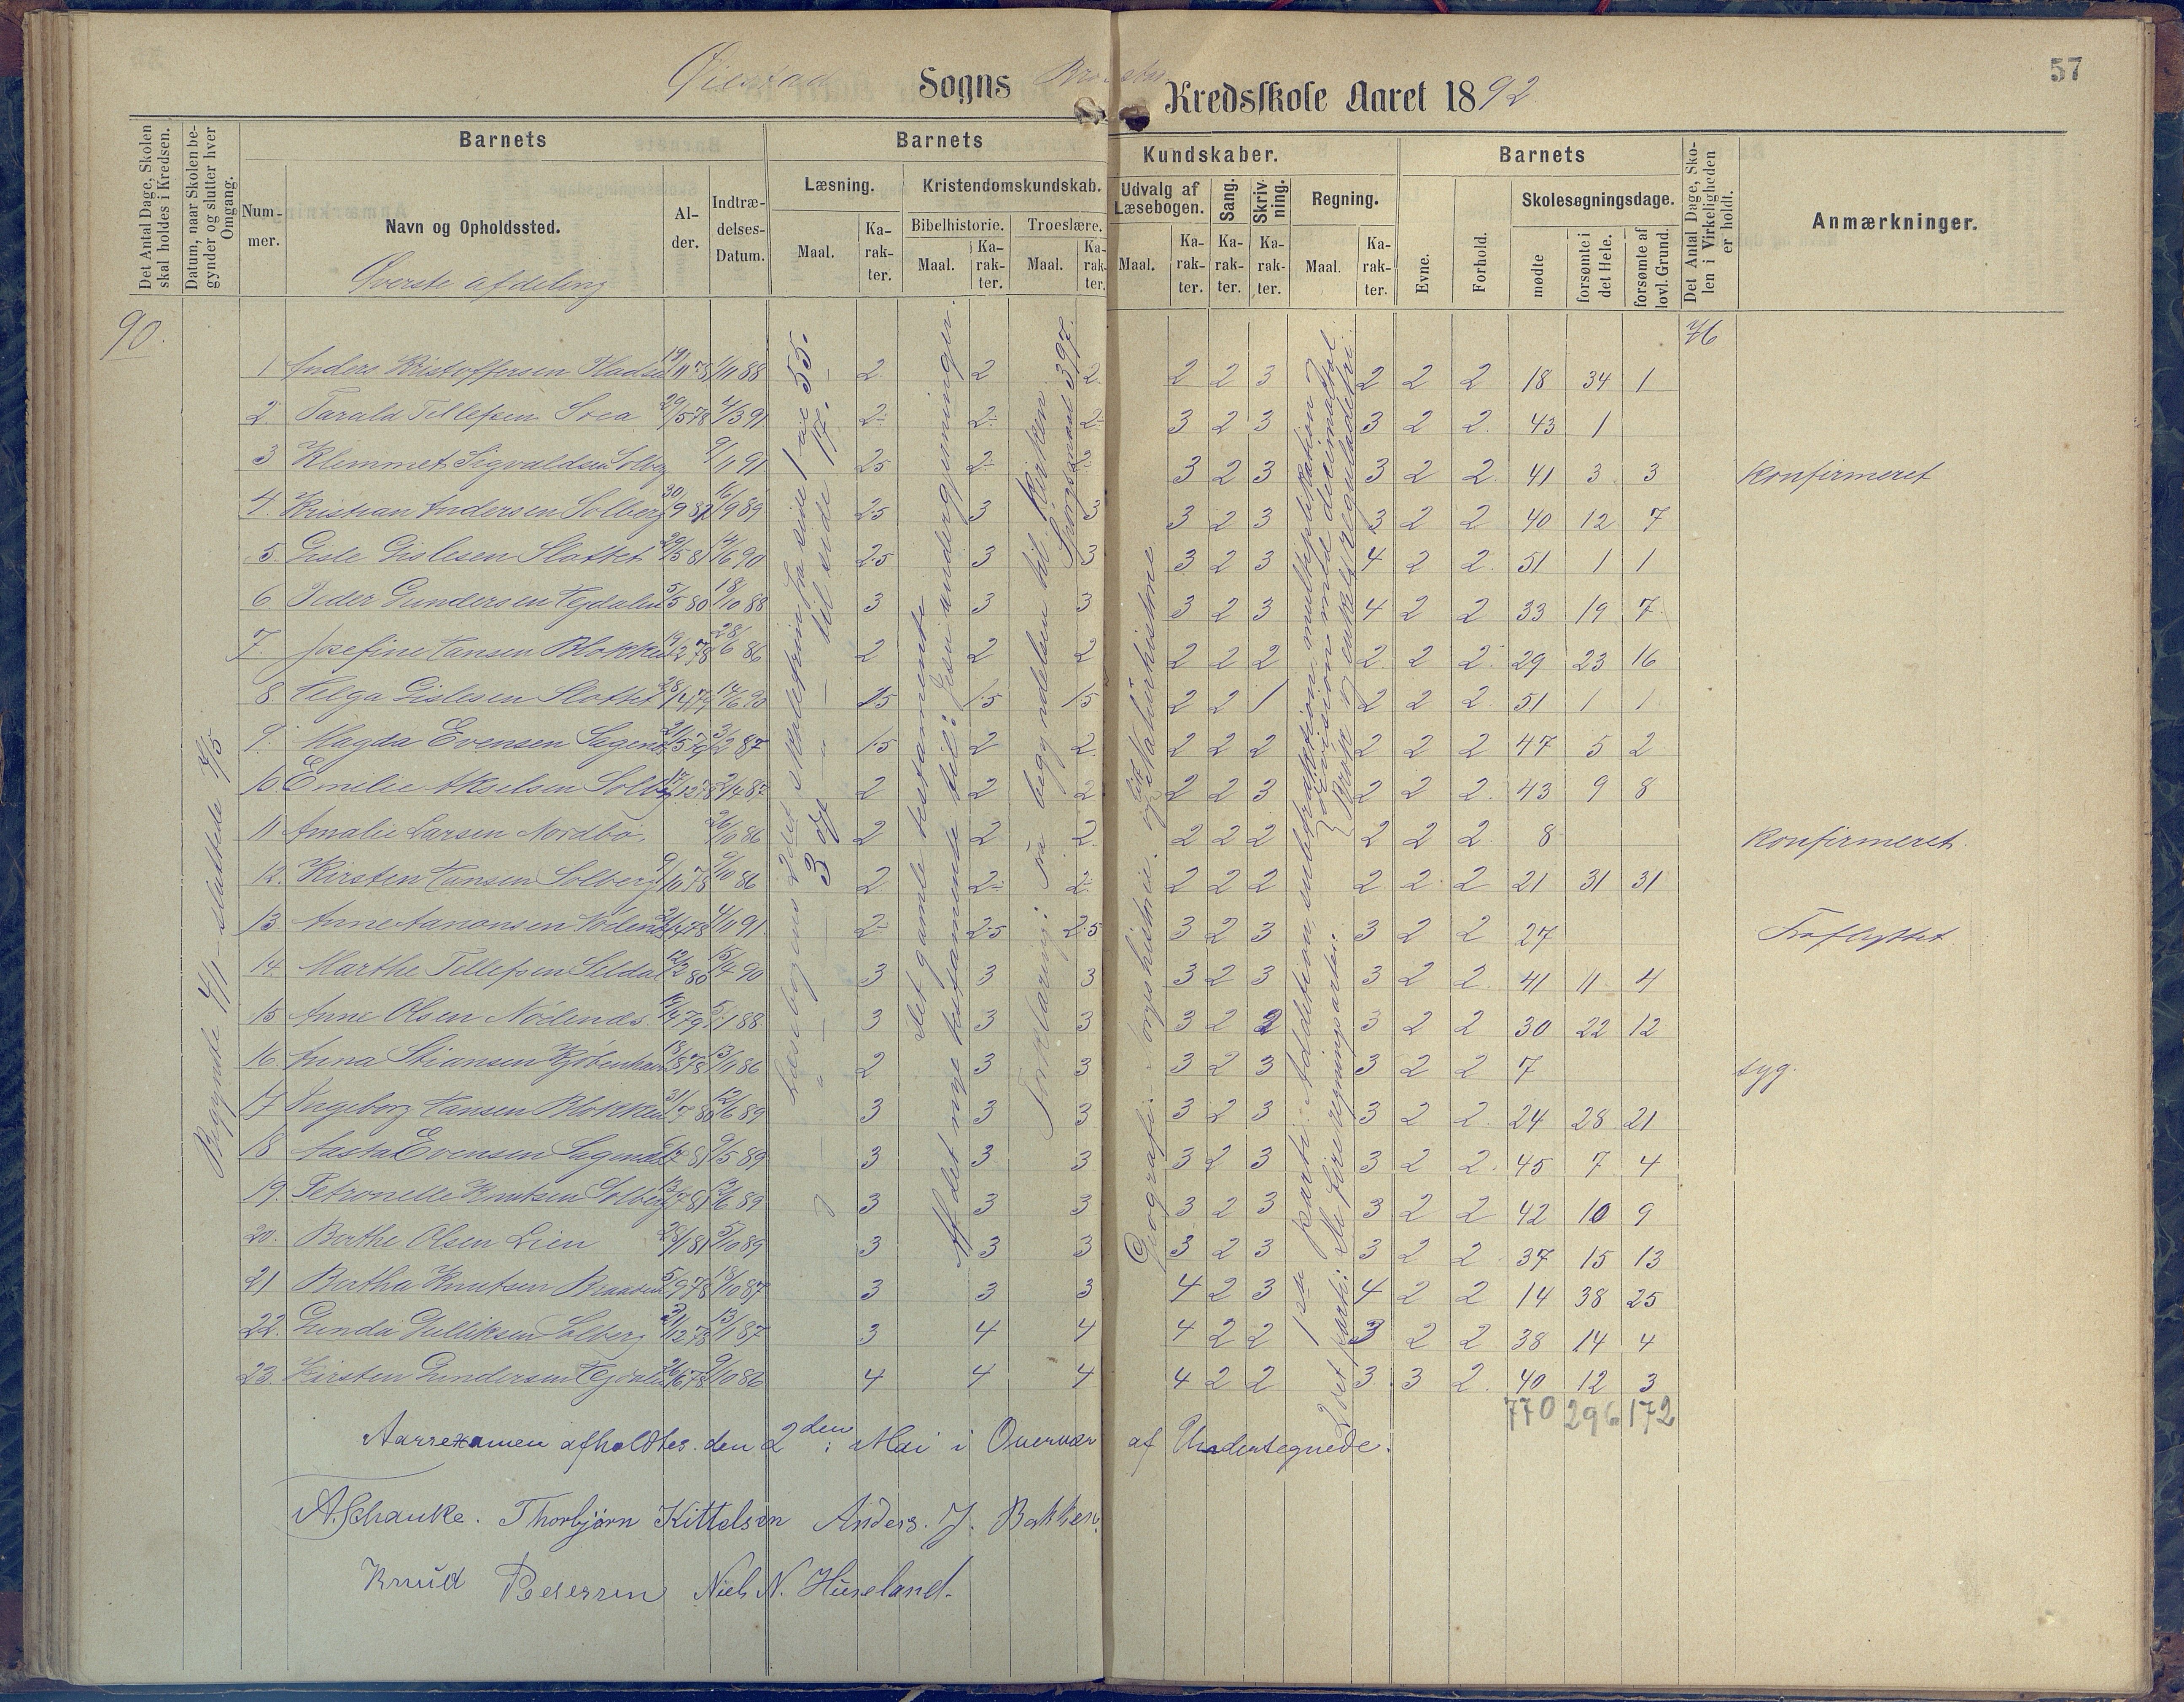 57
Øiestad Sogns Kredsskole Aaret 1892
Det Antal Dage, Skolen skal holdes i Kredsen.
Datum, naar Skolen begynder og slutter hver Omgang.
Barnets
Nummer.
Navn og Opholdssted.
Alder.
Indtrædelses-Datum.
Barnets Kundskaber.
Læsning.
Maal.
Karakter.
Kristendomskundskab.
Bibelhistorie.
Maal.
Karakter.
Troeslære.
Maal.
Karakter.
Udvalg af Læsebogen.
Maal.
Karakter.
Sang.
Karakter.
Skrivning.
Karakter.
Regning.
Maal.
Karakter.
Barnets
Evne.
Forhold.
Skolesøgningsdage.
mødte
forsømte i det Hele.
forsømte af lovl. Grund.
Det Antal Dage, Skolen i Virkeligheden er holdt.
Anmærkninger.
Øverste afdeling
90.
76
Begyndte 4/1 - sluttede 3/5
Læsebogens 2det skoletrin fra side 1 til 55.
" — 3 og — " — til side 17.
det gamle testamente
Af det nye testamente til: Jesu undergjerninger.
Forklaring: Fra begyndelsen til: Kirken. Spørgsmaal 397.
Geografi. Norgeshistorie. og lidt Naturhistorie
1ste parti: Addition, subtraktion, multiplikation & division med decimaltal. Brøk & enkelt reguladetri
2det parti: De fire regningsarter.
1 Anders Kristoffersen 19/11 78 1/11 88 2. 2 2. 2 2 3 2 2 2 18 34 1
2. Tarald Tellefsen Svea 29/5 78 4/3 91 2- 2- 2- 3 2 3 3 2 2. 43 1
3 Klemmet Sigvaldsen Solberg 9/11 91 2.5 2- 2- 3 2 3 3 2 2. 41 3 3 Konfirmeret
4. Kristian Andersen Solberg 30/9 81 16/9 89 2.5 3 3 3 2 3 3 2 2 40 12 7
5. Gisle Gislesen Slottet 29/5 81 14/6 90 2.5 3 3 3 2 3 4 2 2. 51 1 1
6 Peder Gundersen 5/5 80 18/10 88 3 3 3 3 2 3 4 2 2 33 19 7
7. Josefine Hansen Blokken 19/12 78 28/6 86 2 2 2 2 2 2 2 2 2. 29 23 16
8 Helga Gislesen Slottet 28/4 79 14/6 90 1.5 1.5 1.5 2 2 1 2 2 2. 51 1 1
9. Magda Evensen Sagene 21/5 79 3/2 87 1.5 2 2 2 2 2 2 2 2 47 5 2
10 Emelie Akselsen Solberg 17/12 78 2/4 87 2 2 2 2 2 3 2 2 2. 43 9 8
11 Amalie Larsen Nordbø. 26/10 86 2 2 2. 2 2 2 2 2 2. 8 Konfirmeret.
12. Kirsten Hansen Solberg 9/10 78 9/10 86 2 2- 2- 2 2 2 2. 2. 2 21 31 31
13 Anne Aanonsen 4/11 91 2- 2.5 2.5 3 2 3 3 2 2 27 Fraflyttet
14. Marthe Tellefsen 12/2 80 15/4 90 3 3 3 3 2 3 3 2 2. 41 11 4
15 Anne Olsen Nødenes. 5/1 88 3 3 3 3 2 2 3 2 2 30 22 12
16. Anna Stiansen 18/8 78 13/11 86 2 3 3 3 2 3 3 2 2 7 syg.
17 Ingeborg Hansen Blokken 31/7 80 12/6 89 3 3 3 3 2 3 3 2 2. 24 28 21
18 Aasta Evensen Sagene 9/5 89 3 3 3 3 2 3 3 2 2. 45 7 4
19. Petronelle Knutsen Solberg 3 3 3 3 2 3 3 2 2 42 10 9
20. Berthe Olsen Lien 5/10 89 3 3 3 3 2 3 3 2 2. 37 15 13
21 Bertha Knutsen 5/9 78 18/10 87 3 3 3 4 2 3 4 2 2 14 38 25
22. Gunda Gulliksen Solberg 31/12 78 13/1 87 3 4 4 4 2 2 3 2 2 38 14 4
23. Kirsten Gundersen 26/6 78 9/10 86 4 4 4 4 2 2 3 3 2. 40 12 3
770 296 172
Aarsexamen afholdtes. den 2den: Mai i Overvær af Undertegnede.
A. Schanke. Thorbjørn Kittelsen Anders. J. Bakken.
Knud Pedersen Niels N. Huseland.